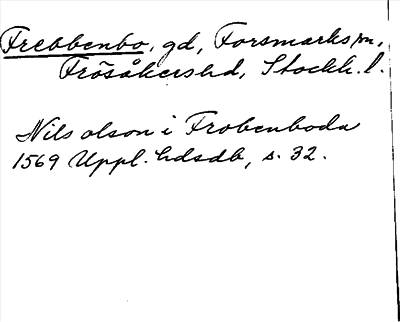 Frebbenbo, gd, Forsmarks sn,
Frösåkers hd, Stockh. l.
Nils olson i Frobenboda
1569 Uppl. hdsdb, s. 32.